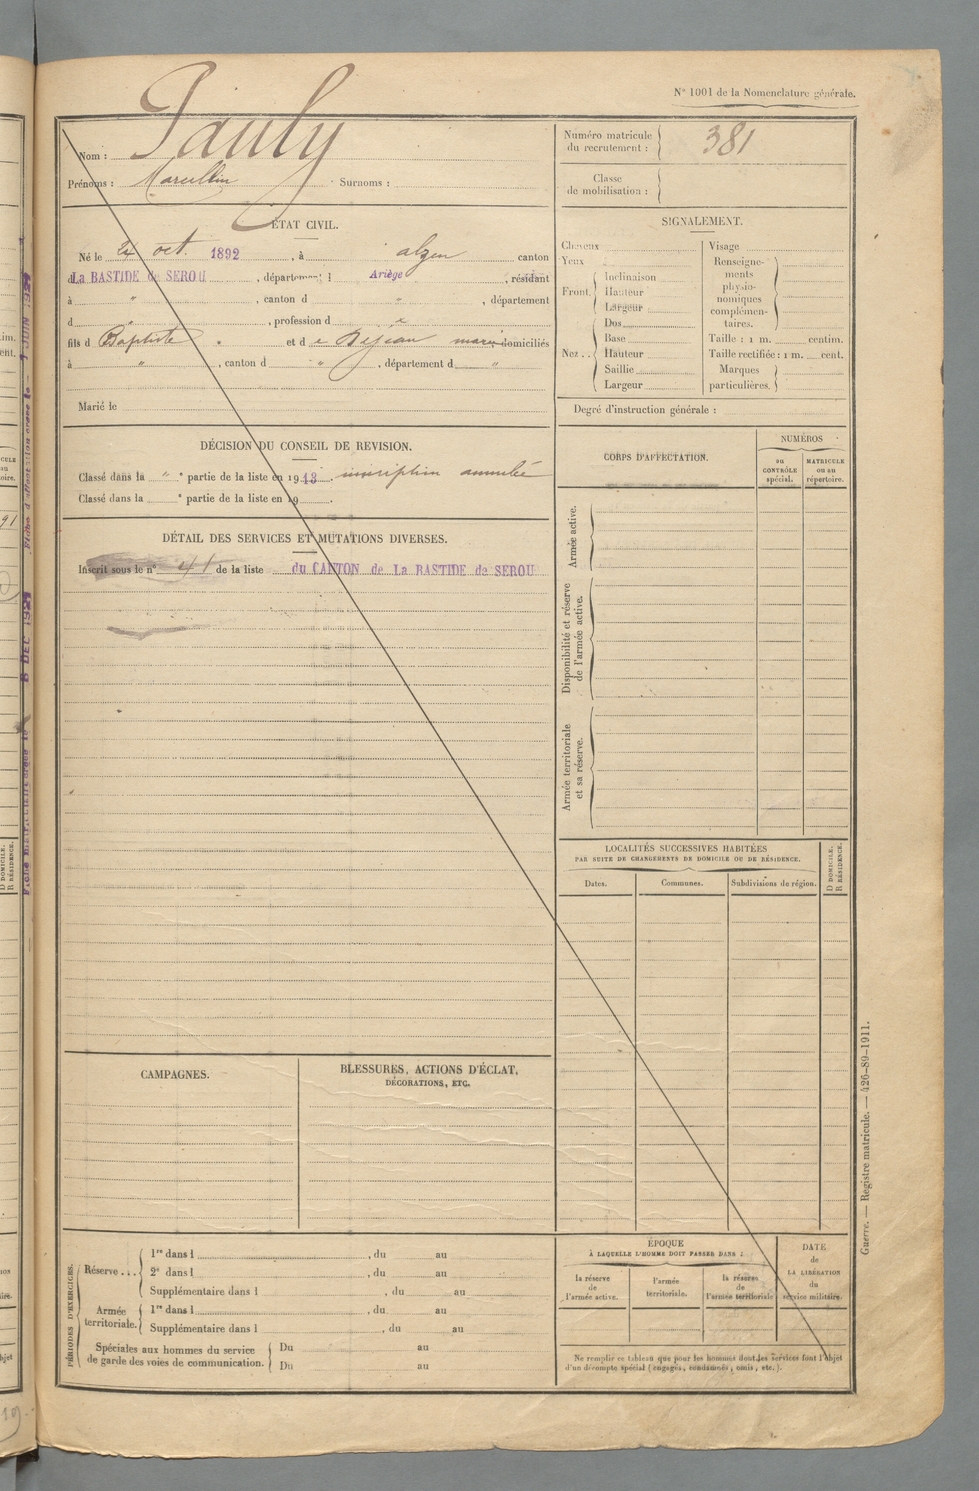 N° 1001 de la Nomenclature générale.
Nom : Pauly
Prénoms : Marcellin Surnoms :
Numéro matricule du recrutement : 381
Classe de mobilisation :
ÉTAT CIVIL.
Né le 24 oct. 1892, à alzen canton
de La BASTIDE de SEROU, département d Ariège, résidant
à ", canton d ", département
d ", profession d
fils d Baptiste et de Déjean marie domiciliés
à ", canton d ", département d "
Marié le
DÉCISION DU CONSEIL DE REVISION.
Classé dans la " e partie de la liste en 1913. inscription annulée
Classé dans la e partie de la liste en 19 .
DÉTAIL DES SERVICES ET MUTATIONS DIVERSES.
Inscrit sous le n° 41 de la liste du CANTON de La BASTIDE de SEROU
CAMPAGNES.
BLESSURES, ACTIONS D'ÉCLAT,
DÉCORATIONS, ETC.
PÉRIODES D'EXERCICES.
Réserve ...
1re dans l , du au
2e dans l , du au
Supplémentaire dans l , du au
Armée territoriale.
1re dans l , du au
Supplémentaire dans l , du au
Spéciales aux hommes du service
de garde des voies de communication.
Du au
Du au
SIGNALEMENT.
Cheveux
Yeux
Front.
Inclinaison
Hauteur
Largeur
Nez ..
Dos
Base
Hauteur
Saillie
Largeur
Visage
Renseigne-
ments
physio-
nomiques
complémen-
taires.
Taille : 1 m. centim.
Taille rectifiée : 1 m. cent.
Marques
particulières.
Degré d'instruction générale :
CORPS D'AFFECTATION.
NUMÉROS
au CONTRÔLE spécial.
MATRICULE ou au répertoire.
Armée active.
Disponibilité et réserve de l'armée active.
Armée territoriale et sa réserve.
LOCALITÉS SUCCESSIVES HABITÉES
PAR SUITE DE CHANGEMENTS DE DOMICILE OU DE RÉSIDENCE.
D DOMICILE.
R RÉSIDENCE.
Dates.
Communes.
Subdivisions de région.
ÉPOQUE
À LAQUELLE L'HOMME DOIT PASSER DANS :
la réserve de l'armée active.
l'armée territoriale.
la réserve de l'armée territoriale
DATE
de
LA LIBÉRATION
du
service militaire.
Ne remplir ce tableau que pour les hommes dont les services font l'objet
d'un décompte spécial (engagés, condamnés, omis, etc.).
Guerre. — Registre matricule. — 426-89-1911.